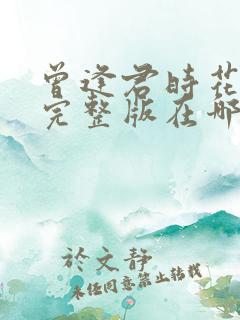 曾逢君时花
完整版在哪
於文静
未经同意禁止转载